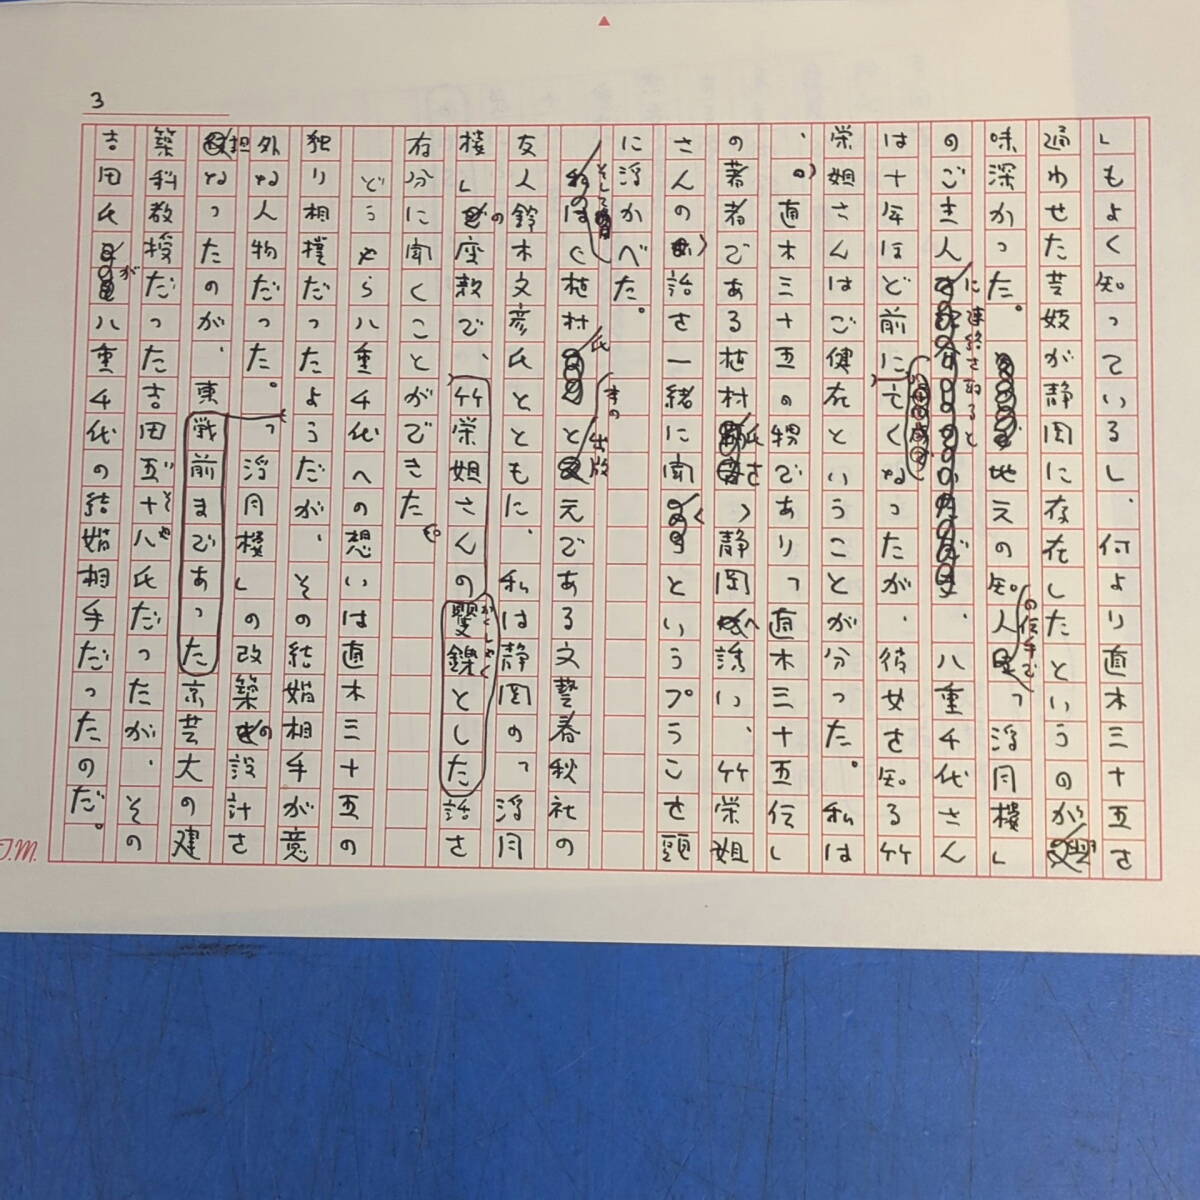 3
」もよく知っているし、何より直木三十五を
通わせた芸妓が静岡に存在したというのが興
味深かった。地元の知人の伝手で「浮月楼」
のご主人に連絡を取ると、八重千代さん
は十年ほど前に亡くなったが、彼女を知る竹
栄姐さんはご健在ということが分った。私は
、直木三十五の甥であり「直木三十五伝」
の著者である植村氏を静岡へ誘い、竹栄姐
さんの話を一緒に聞くというプランを頭
に浮かべた。
そして植村氏と本の出版元である文藝春秋社の
友人鈴木文彦氏とともに、私は静岡の「浮月
楼」の座敷で、竹栄姐さんの矍鑠とした話を
かくしゃく
存分に聞くことができた。
どうやら八重千代への想いは直木三十五の
独り相撲だったようだが、その結婚相手が意
外な人物だった。「浮月楼」の改築の設計を
担なったのが、戦前まであった東京芸大の建
築科教授だった吉田五十八氏だったが、その
いそや
吉田氏が八重千代の結婚相手だったのだ。
J.M.